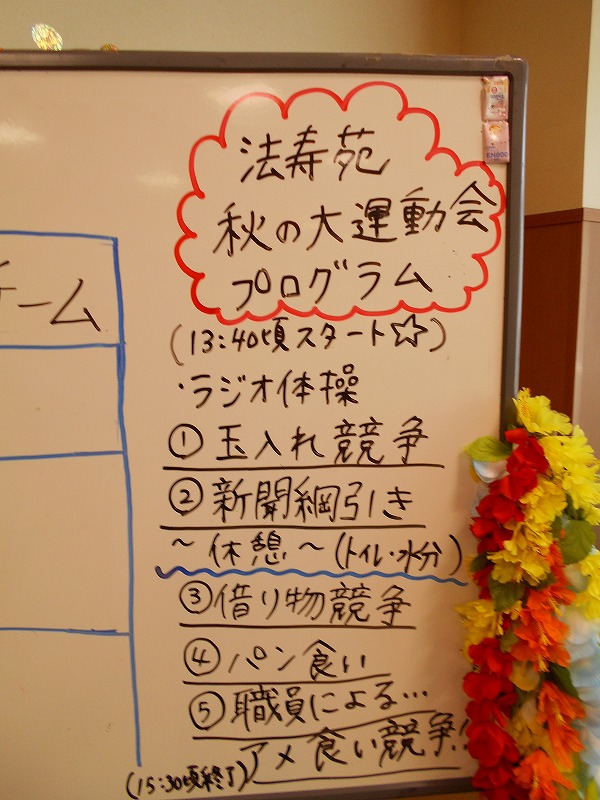 法寿苑
秋の大運動会
プログラム
(13:40頃スタート☆)
・ラジオ体操
①玉入れ競争
②新聞綱引き
～休憩～(トイレ・水分)
③借り物競争
④パン食い
⑤職員による…
アメ食い競争!
(15:30頃終了)
チーム